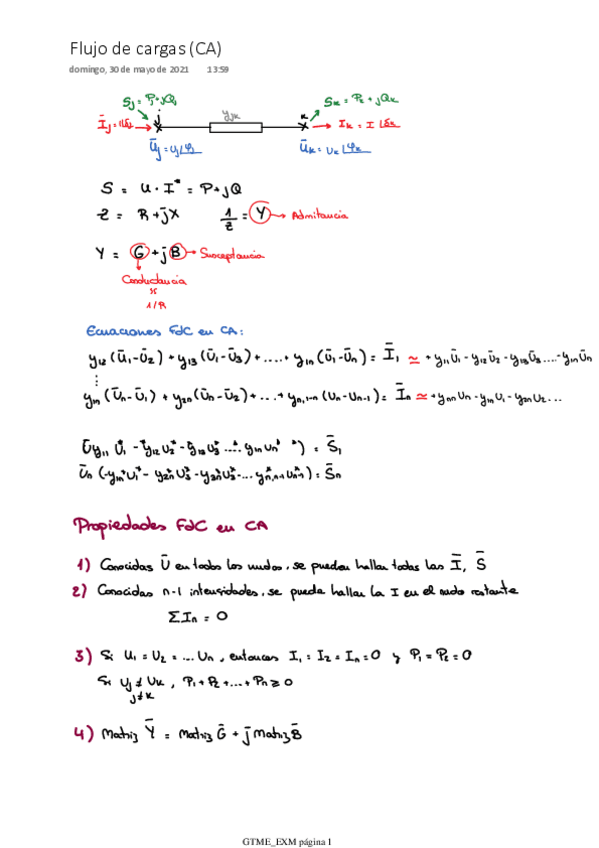 Flujo de cargas (CA)
domingo, 30 de mayo de 2021 13:59
Sj = Pj+jQj
yjk
Sk = Pk + jQk
j
k
Īj = I|δj
Ik = I |δk
Ūj = Uj|φj
Ūk = Uk |φk
S = U · I* = P+jQ
Z = R+jX 1/Z = Y → Admitancia
Y = G + jB → Susceptancia
Conductancia
1/R
Ecuaciones FdC en CA:
y12 (Ū1-Ū2) + y13 (Ū1-Ū3) + .... + y1n (Ū1-Ūn) = Ī1 ≃ + y11Ū1 - y12Ū2 - y13Ū3 .... - y1nŪn
⋮
y1n (Ūn-Ū1) + y2n (Ūn-Ū2) + ... + yn,1-n (Un-Un-1) = Īn ≃ + ynn Un - y1n U1 - y2n U2 ...
) = S̄1
Ūn (-y1n*U1* - y2n*U2* - y3n*U3* - ... ) = S̄n
Propiedades FdC en CA
1) Conocidas Ū en todos los nudos, se pueden hallar todas las Ī, S̄
2) Conocidas n-1 intensidades, se puede hallar la I en el nudo restante
ΣIn = 0
3) Si U1 = U2 = ... Un, entonces I1 = I2 = In = 0 y P1 = P2 = 0
Si Uj ≠ Uk , P1 + P2 + ... + Pn ≥ 0
j≠k
4) Matriz Ȳ = Matriz Ḡ + j Matriz B̄
GTME_EXM página 1